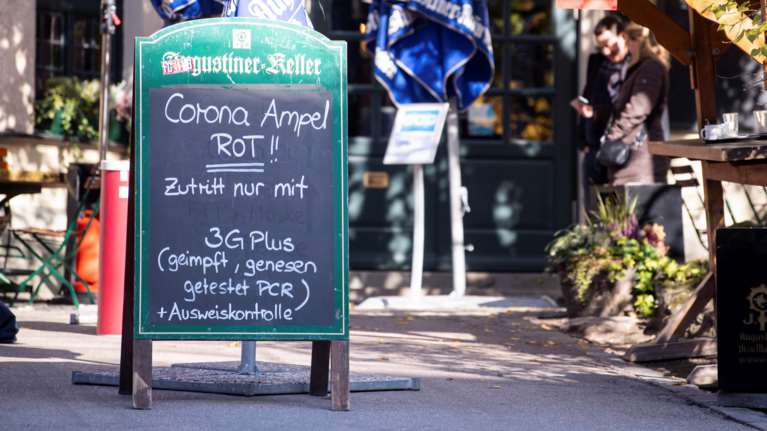 Augustiner-Keller
Corona Ampel
ROT !!
Zutritt nur mit
3G Plus
(geimpft, genesen
getestet PCR)
+ Ausweiskontrolle